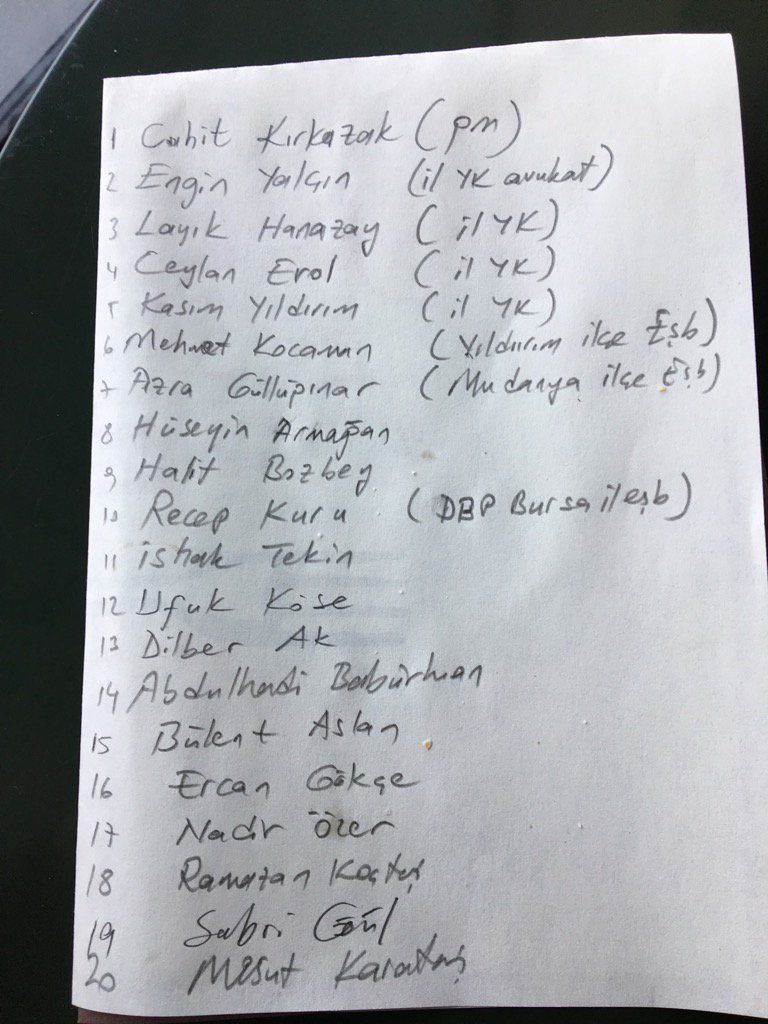 1 Cahit Kırkazak (pm)
2 Engin Yalçın (il YK avukat)
3 Layık Hanazay (il YK)
4 Ceylan Erol (il YK)
5 Kasım Yıldırım (il YK)
6 Mehmet Kocaman (Yıldırım ilçe Eşb)
7 Azra Güllüpınar (Mudanya ilçe Eşb)
8 Hüseyin Armağan
9 Halit Bozbey
10 Recep Kuru (DBP Bursa il eşb)
11 ishak Tekin
12 Ufuk Köse
13 Dilber Ak
14 Abdulhadi
15 Bülent Aslan
16 Ercan Gökçe
17 Nadir özer
18 Ramazan
19 Sabri Gül
20 Mesut Karataş